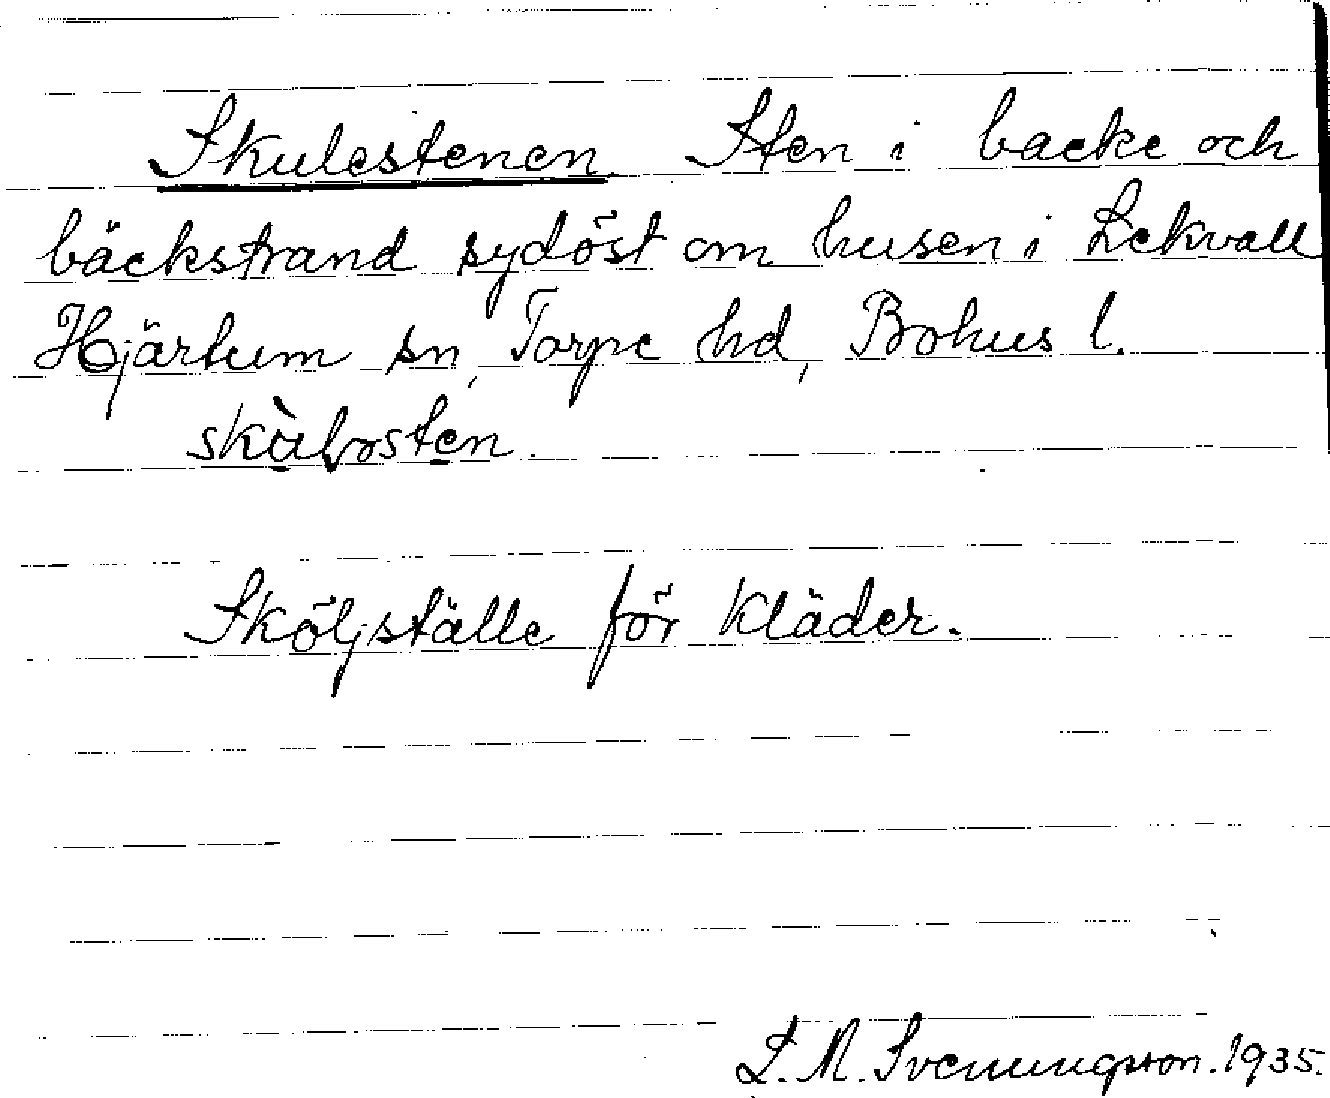 Skulestenen. Sten i backe och
bäckstrand sydöst om husen i Lekvall
Hjärtum sn, Torpe hd, Bohus l.
Sköljställe för kläder.
L. M. Svenungsson. 1935.